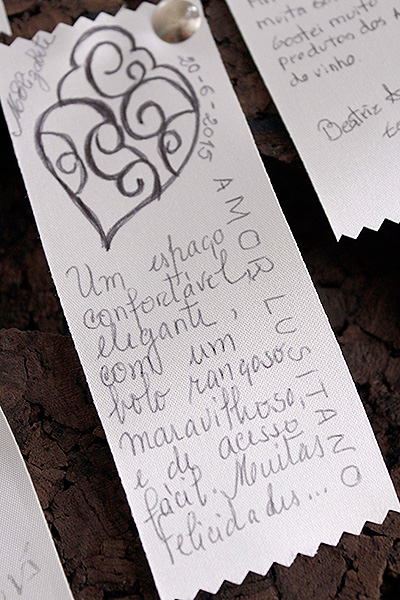 20-6-2015
AMOR LUSITANO
Um espaço
confortável,
elegante,
com um
bolo rançoso
maravilhoso,
e de acesso
fácil. Muitas
felicidades...
muita
Gostei muito
produtos dos
de vinho.
Beatriz